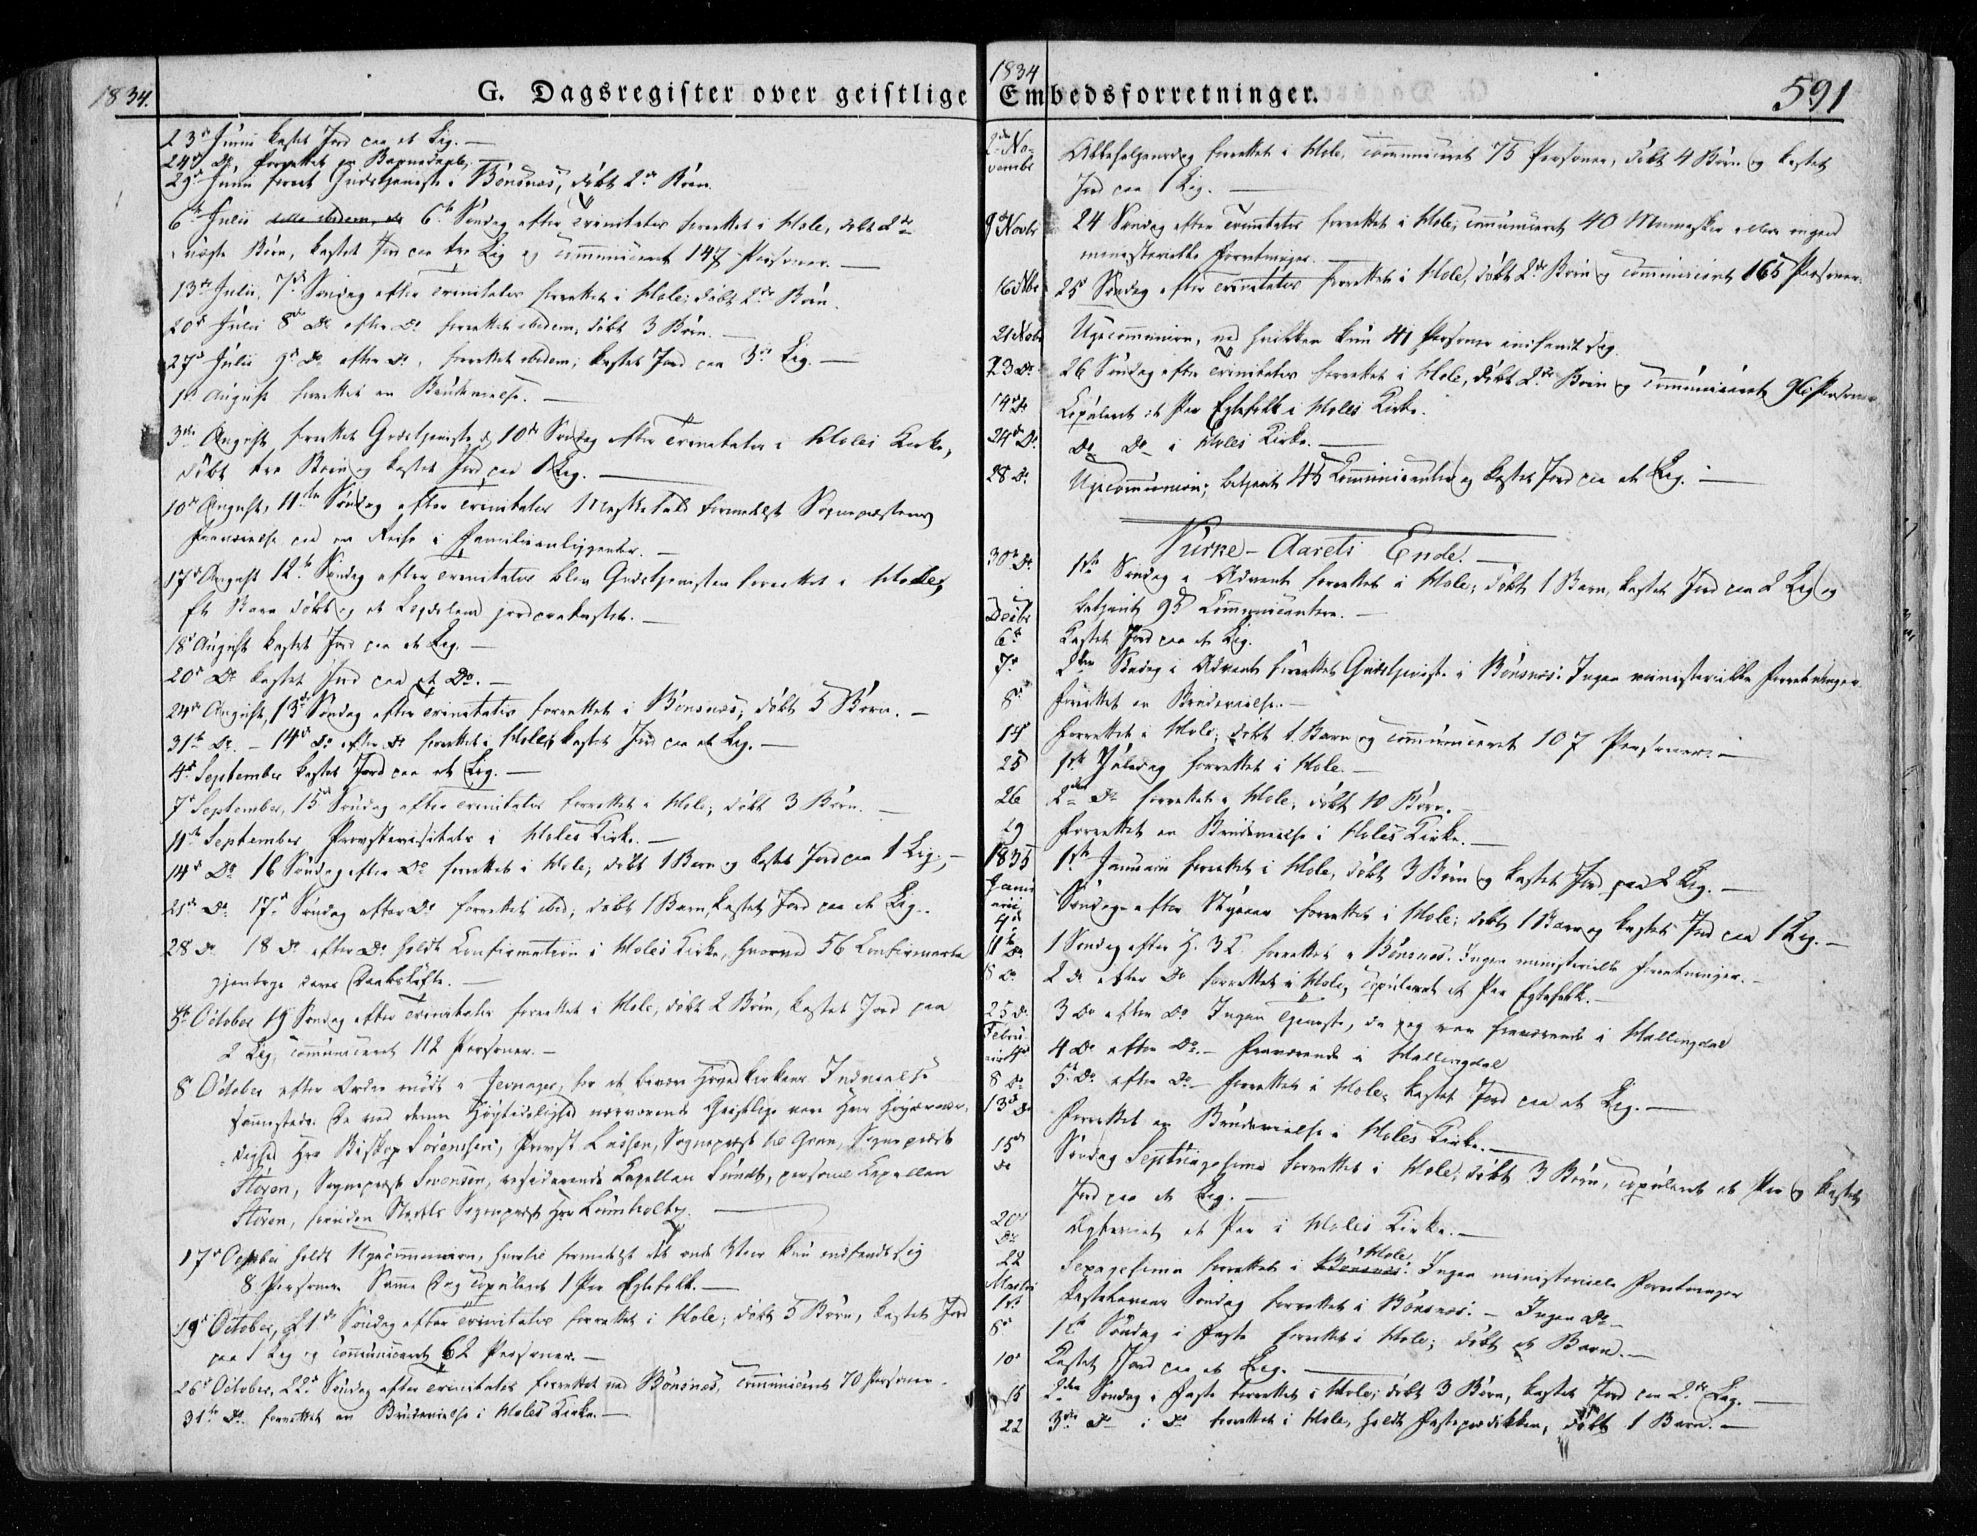 1834.
G. Dagsregister over geistlige
23de Junii kastet Jord paa et Lig. —
24de Do. forrettet en Barnedaab.
29de Junii forret Gudstjeneste i Bönsnæs, döbt 2de Börn.
6te Julii 6te Söndag efter Trinitatis forrettet i Hole, döbt 2de
uægte Börn, kastet Jord paa tre Lig og communiceret 147 Personer. —
13de Julii, 7de Söndag efter Trinitatis forrettet i Hole; döbt 2de Börn.
20de Julii 8de Do efter Do forrettet ibidem, döbt 3 Börn. —
27de Julii 9de Do efter Do, forrettet ibidem; kastet Jord paa 3de Lig. —
1ste August forrettet en Brudevielse. —
3die August, forrettet Gudstjeneste d. 10de Söndag efter Trinitatis i Holes Kirke,
döbt tre Börn og kastet Jord paa 1 Lig. —
10de August, 11te Söndag efter Trinitatis Messefald formedelst Sognepræstens
Fraværelse paa en Reise i Familieanliggender. —
17de August 12te Söndag efter Trinitatis blev Gudstjenesten forrettet i Hole,
et Barn döbt og et Lig jordpaakastet. —
18de August kastet Jord paa et Lig. —
20de Do kastet Jord paa et Do. —
24de August, 13de Söndag efter Trinitatis forrettet i Bönsnæs, döbt 5 Börn. —
31te Do. — 14de Do efter Do forrettet i Hole, kastet Jord paa et Lig. —
4de September kastet Jord paa et Lig. —
7de September, 15de Söndag efter Trinitatis forrettet i Hole, döbt 3 Börn. —
11te September Provstevisitats i Holes Kirke. —
14de Do 16 Söndag efter Do forrettet i Hole, döbt 1 Barn og kastet Jord paa 1 Lig. —
21de Do. 17de Söndag efter Do forrettet ibid, döbt 1 Barn, kastet Jord paa et Lig.
28 Do 18 Do efter Do holdt Confirmation i Holes Kirke, hvorved 56 Confirmerte
gjentoge deres Daabslöfte. —
5te October 19 Söndag efter Trinitatis forrettet i Hole, döbt 2 Börn, kastet Jord paa
2 Lig, communiceret 112 Personer. —
8 October efter Ordre mödt i Jevnager, for at bivaane Hovedkirkens Indvielse
sammesteds. De ved denne Höytidelighed nærværende Geistlige vare Hans Höyærvær-
dighed Hr. Biskop Sörenssen, Provst Lassen, Sognepræst til Gran, Sognepræst
Steren, Sognepræst Svensen, residerende Kapellan Sundt, personel Kapellan
Steren, foruden Stedets Sognepræst Hr Lumholtz. —
17de October holdt Ugecommunion, hvortil formedelst det onde Veir kun indfandt sig
8 Personer. Samme Dag copuleret 1 Par Egtefolk. —
19de October, 21de Söndag efter Trinitatis forrettet i Hole; döbt 5 Börn, kastet Jord
paa 1 Lig og communiceret 62 Personer. —
26de October, 22de Söndag efter Trinitatis forrettet ved Bönsnæs, communiceret 70 Personer.
31te Do. forrettet en Brudevielse i Holes Kirke. —
1834
Embedsforretninger.
591
2den No-
vembr
Allehelgensdag forrettet i Hole, communiceret 75 Personer, döbt 4 Börn og kastet
Jord paa 1 Lig. —
9de Novbr 24 Söndag efter Trinitatis forrettet i Hole, communiceret 40 Mennesker ellers ingen
ministerielle Forretninger. —
16 Nbr 25de Söndag efter Trinitatis forrettet i Hole, döbt 2de Börn og communiceret 165 Personer.
21 Novbr Ugecommunion, ved hvilken kun 41 Personer indfandt sig.
23 Do 26 Söndag efter Trinitatis forrettet i Hole, döbt 2de Börn og communiceret Personer.
Do Copuleret et Par Egtefolk i Holes Kirke.
24de Do. Do Do i Holes Kirke. —
28 Do. Ugecommunion; betjent 45 Communicantere og kastet Jord paa et Lig. —
Kirke-Aarets Ende. —
30te Do 1ste Söndag i Advent forrettet i Hole; döbt 1 Barn, kastet Jord paa 2 Lig og
betjent 95 Communicantere. —
Decbr
6te Kastet Jord paa et Lig.
7de 2den Söndag i Advent forrettet Gudstjeneste i Bönsnæs. Ingen ministerielle Forretninger.
8de Forrettet en Brudevielse. —
14 Forrettet i Hole; döbt 1 Barn og communiceret 107 Personer. —
25 1ste Juledag forrettet i Hole. —
26 2den Do forrettet i Hole, döbt 10 Börn.
29 Forrettet en Brudevielse i Holes Kirke. —
1835 1ste Januarii forrettet i Hole, döbt 3 Börn og kastet Jord paa 2 Lig. —
Janu
arii
4de Söndag efter Nyaar forrettet i Hole; döbt 1 Barn og kastet Jord paa 1 Lig. —
11te Do 1 Söndag efter H. 3 K. forrettet i Bönsnæs. Ingen ministerielle Forretninger. —
18 Do. 2 Do efter Do forrettet i Hole, copuleret et Par Egtefolk. —
25 Do 3 Do efter Do Ingen Tjeneste, da jeg var fraværende i Hallingdal
Febru-
arii
4 Do efter Do. — Fraværende i Hallingdal
8 Do 5te Do efter Do — forrettet i Hole, kastet Jord paa et Lig. —
13de Do Forrettet en Brudevielse i Holes Kirke. —
15de
Do Söndag Septuagesima forrettet i Hole, döbt 3 Börn, copuleret et Par og kastet
Jord paa et Lig. —
20de
Do Egteviet et Par i Holes Kirke. —
22 Sexagesima forrettet i Hole. Ingen ministerielle Forretninger
Martii
1ste Fastelavns Söndag forrettet i Bönsnæs. — Ingen Do —
8de 1ste Söndag i Faste forrettet i Hole; döbt et Barn. —
10de Kastet Jord paa et Lig. —
15 2den Söndag i Faste forrettet i Hole, döbt 3 Börn, kastet Jord paa 2de Lig. —
22 3die Do i Do forrettet i Hole, holdt Fasteprædikken, döbt 1 Barn. —